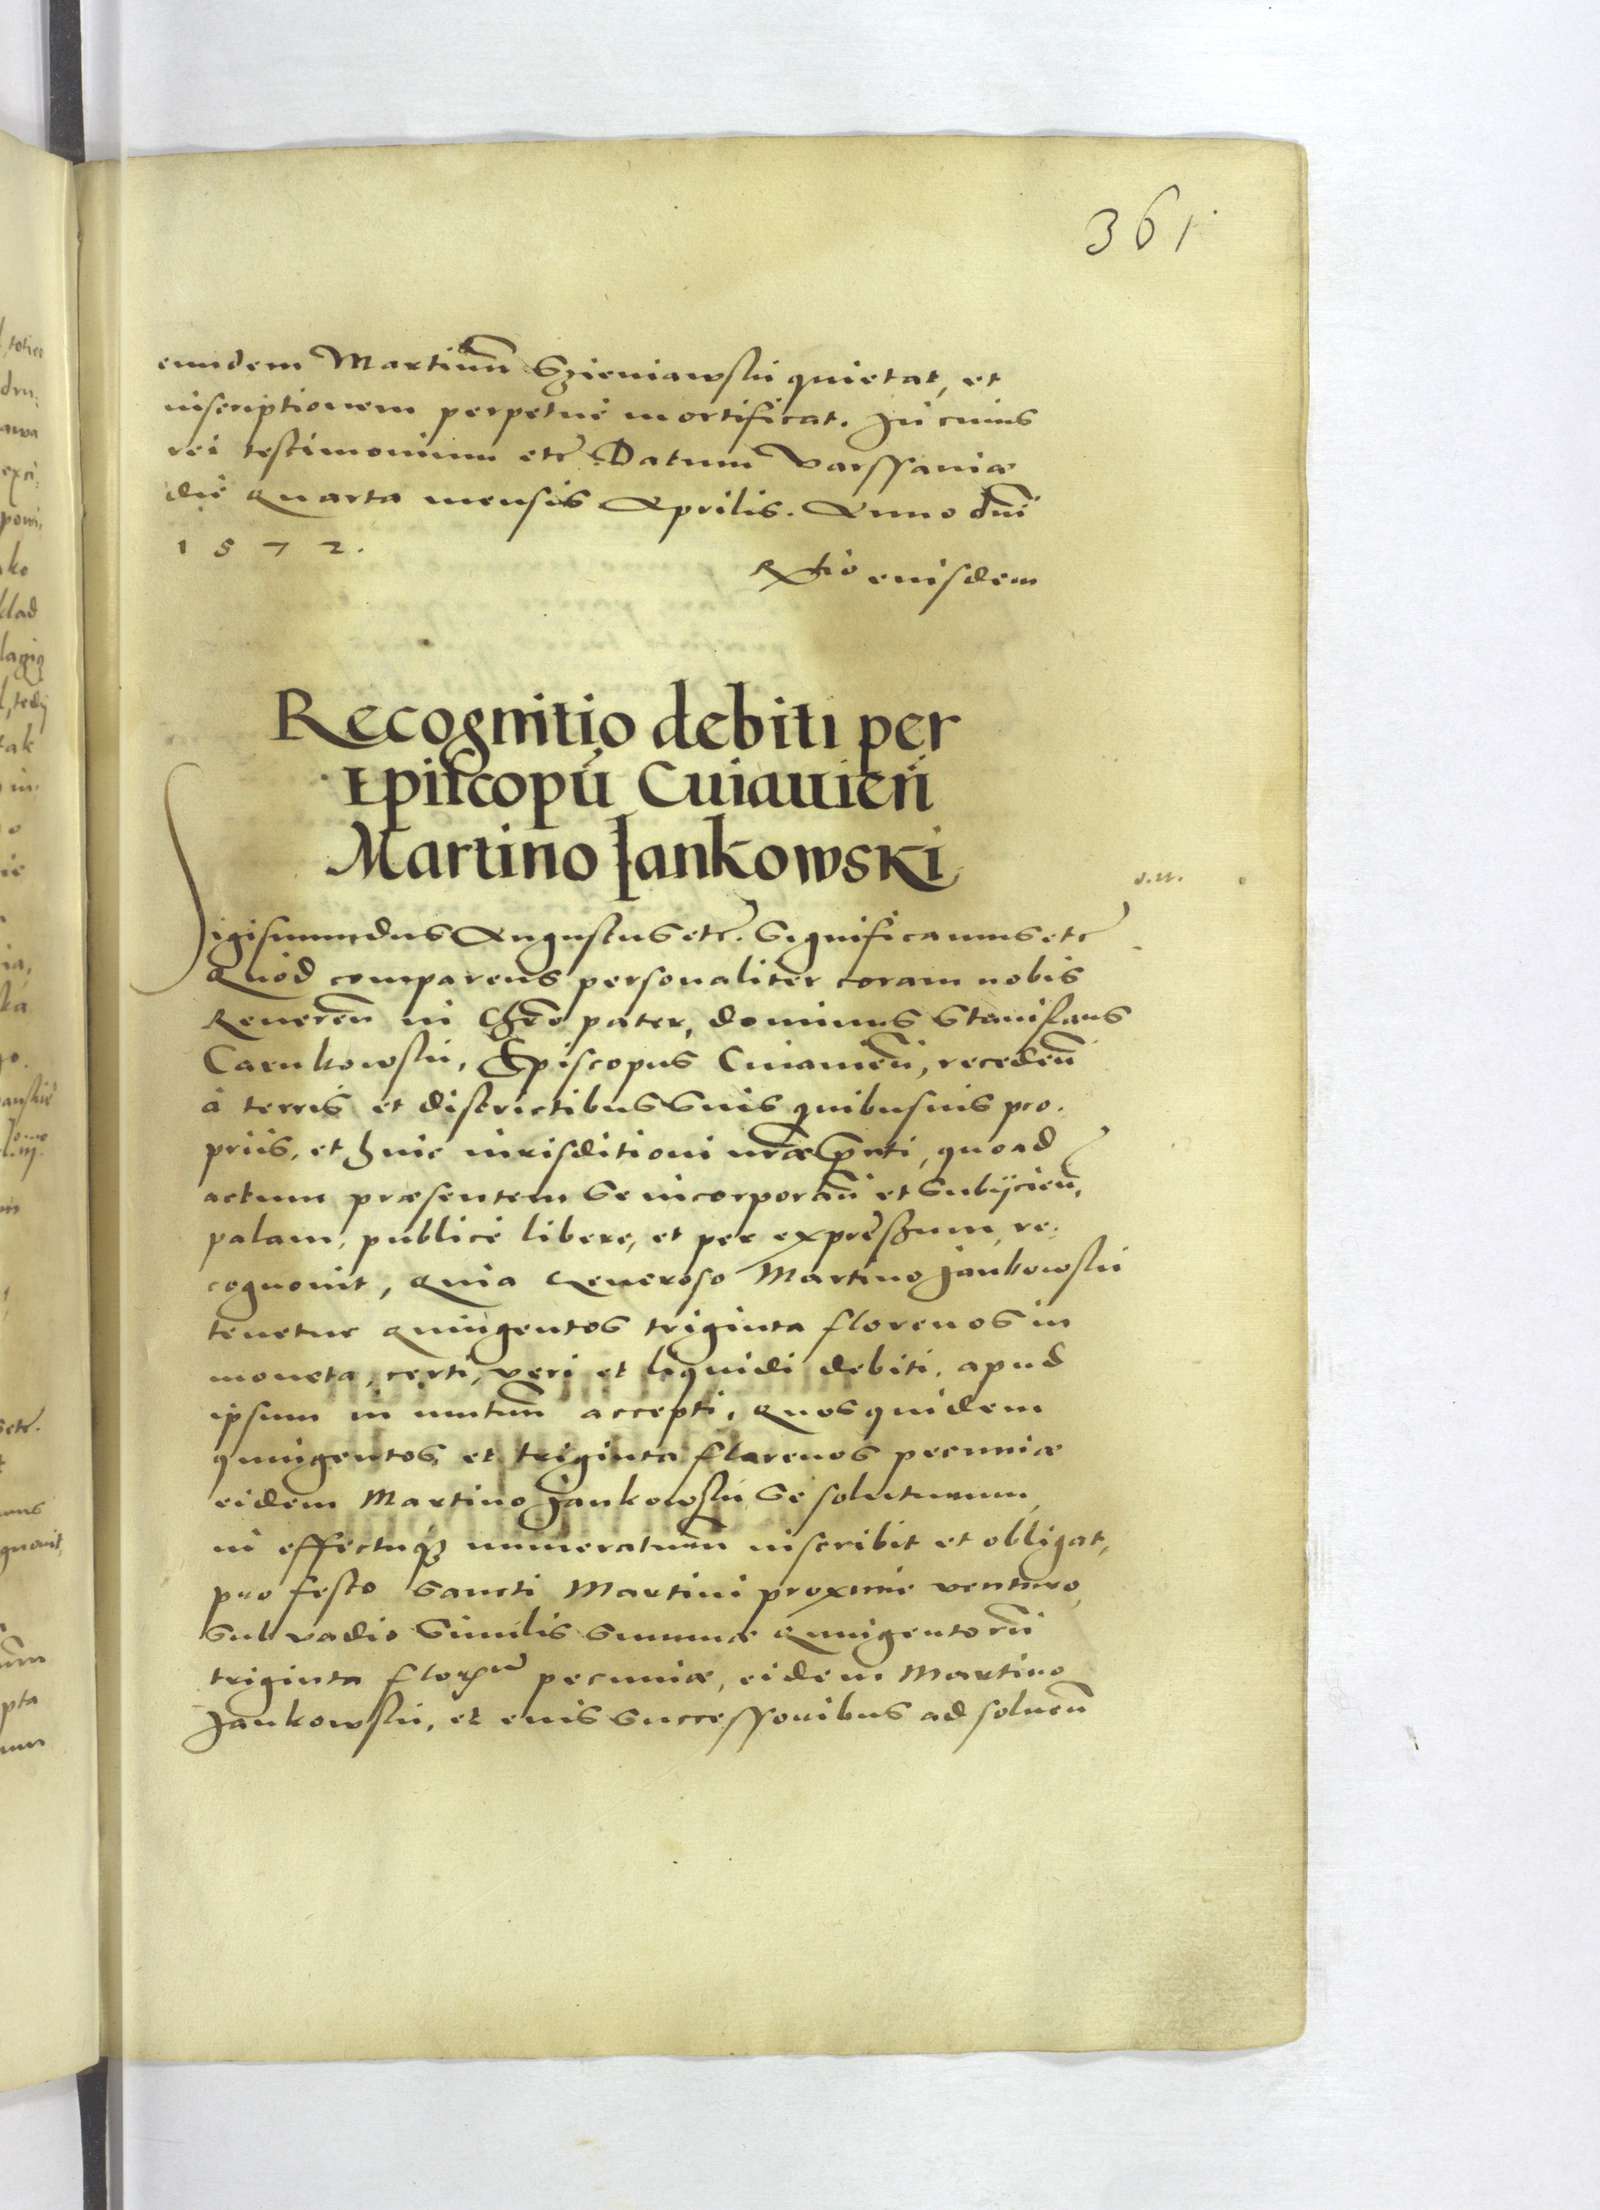 361
eundem Martinũ Szieniawski quietat, et
inscriptionem perpetue mortificat. In cuius
rei testimonium etc̃. Datum Varssaviæ
die Quarta mensis Aprilis. Anno dñi
1572.
Rtio eiusdem
Recognitio debiti per
Episcopũ Cuiauień
Martino Iankowski
Sigismundus Augustus etc̃. Significamus etc̃
Quod comparens personaliter coram nobis
Reueren̄ in Chr̃o pater, dominus Stanislaus
Carnkowski, Episcopus Cuiauień, recedeñ
à terris et districtibus suis quibusuis pro.
priis, et huic iurisditioni nr̃æ p̃nti, quoad
actum præsentem se incorporañ et subijcień,
palam, publicè libere, et per expressum, re.
cognouit, Quia Generoso Martino Jankowski
tenetur Quingentos triginta florenos in
moneta, certi, veri et liquidi debiti, apud
ipsum in mutuũ accepti, Quos quidem
quingentos et triginta florenos pecuniæ
eidem Martino Jankowski se soluturum,
in effectuq3 numeraturum inscribit et obligat,
pro festo Sancti Martini proxime venturo,
Sub vadio similis summæ Quingentorũ
triginta flor. pecuniæ, eidem Martino
Jankowski, et eius successoribus ad soluen̄